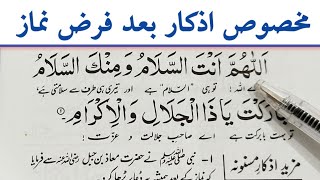 مخصوص اذکار بعد فرض نماز
اَللّٰهُمَّ اَنْتَ السَّلَامُ وَمِنْكَ السَّلَامُ
اے اللہ! تو ہی "السلام" ہے اور تیری ہی طرف سے سلامتی ہے،
تَبَارَكْتَ يَاذَا الْجَلَالِ وَالْاِكْرَامِ ①
تو بہت بابرکت ہے اے صاحب جلالت و عزت!
مزید اذکار مسنونہ
۱- نبی ﷺ نے حضرت معاذ بن جبل رضی اللہ عنہ سے فرمایا